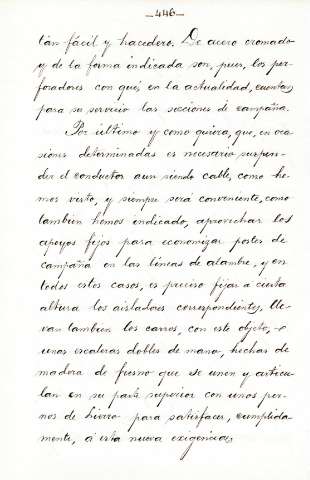 -446-
tan fácil y hacedero. De acero cromado
y de la forma indicada son, pues, los per-
foradores con que, en la actualidad, cuentan
para su servicio las secciones de campaña.
Por último y como quiera, que, en oca-
siones determinadas es necesario suspen-
der el conductor aun siendo cable, como he-
mos visto, y siempre será conveniente, como
tambien hemos indicado, aprovechar los
apoyos fijos para economizar postes de
campaña en las líneas de alambre, y en
todos estos casos, es preciso fijar á cierta
altura los aisladores correspondientes, lle-
van tambien los carros, con este objeto,
unas escaleras dobles de mano, hechas de
madera de fresno que se unen y articu-
lan en su parte superior con unos per-
nos de hierro para satisfacer, cumplida-
mente, á esta nueva exigencia,